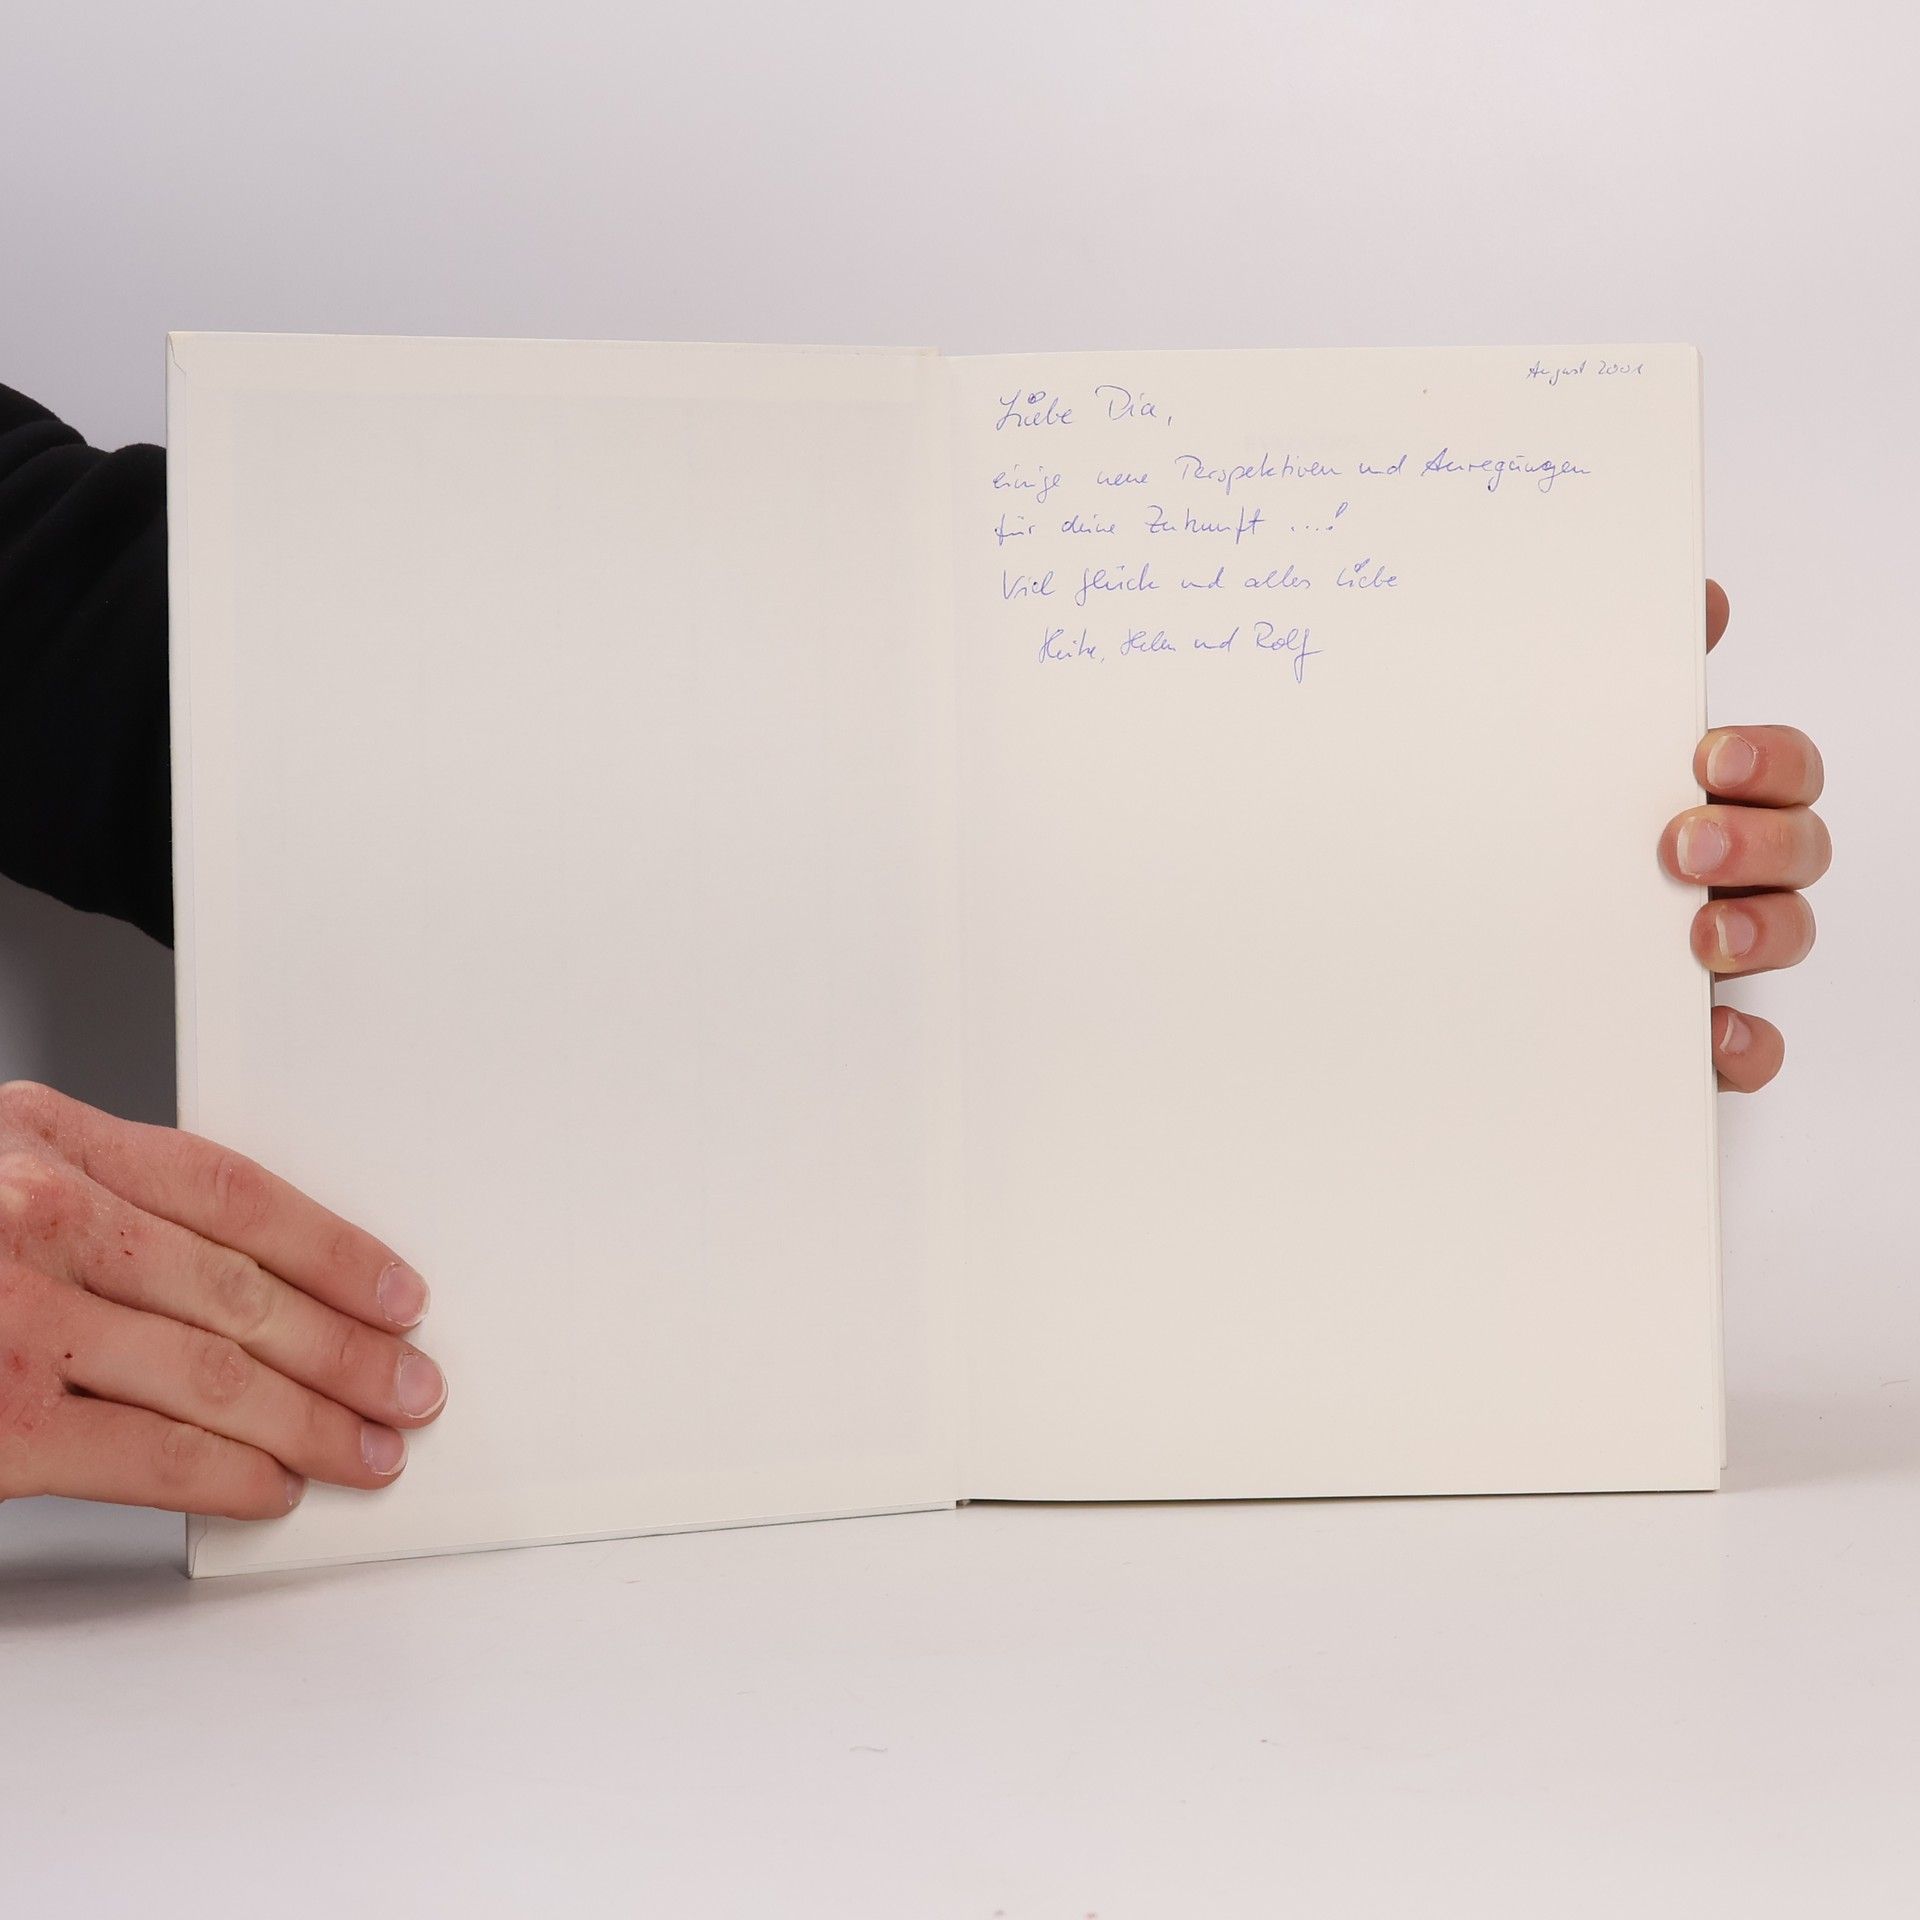 August 2001
Liebe Dia,
einige neue Perspektiven und Anregungen
für deine Zukunft ...!
Viel Glück und alles Liebe
Heike, Helen und Rolf